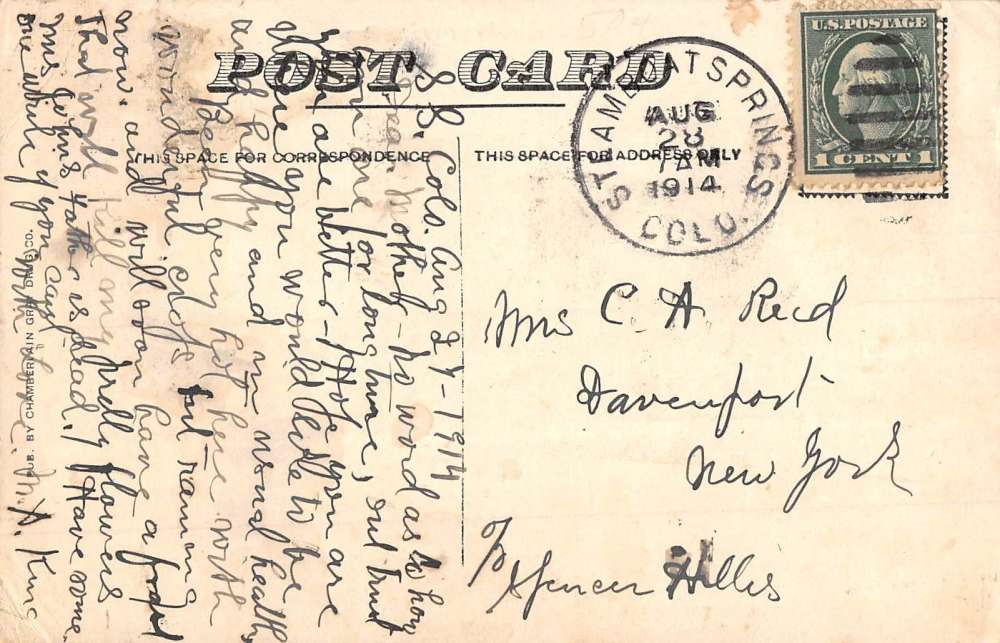 POST CARD
THIS SPACE FOR CORRESPONDENCE
THIS SPACE FOR ADDRESS ONLY
U.S. POSTAGE
1 CENT 1
STEAMBOAT SPRINGS
AUG
28
7 AM
1914
COLO.
Mrs C. A Reed
Davenport
New York
c/o Spencer Hillis
S. S. Colo. Aug 27-1914
Dear Mother - No word as to how
you are for long time, but trust
you are better - Hope you are
where you would like to be
and happy and in usual health
Been very hot here with
wonderful crops but raining
now. and will soon have a frost
That will kill my pretty flowers -
Mrs. father is dead. Have some
one write if you can
With love. M. A. King
PUB. BY CHAMBERLAIN GRAY DRUG CO.